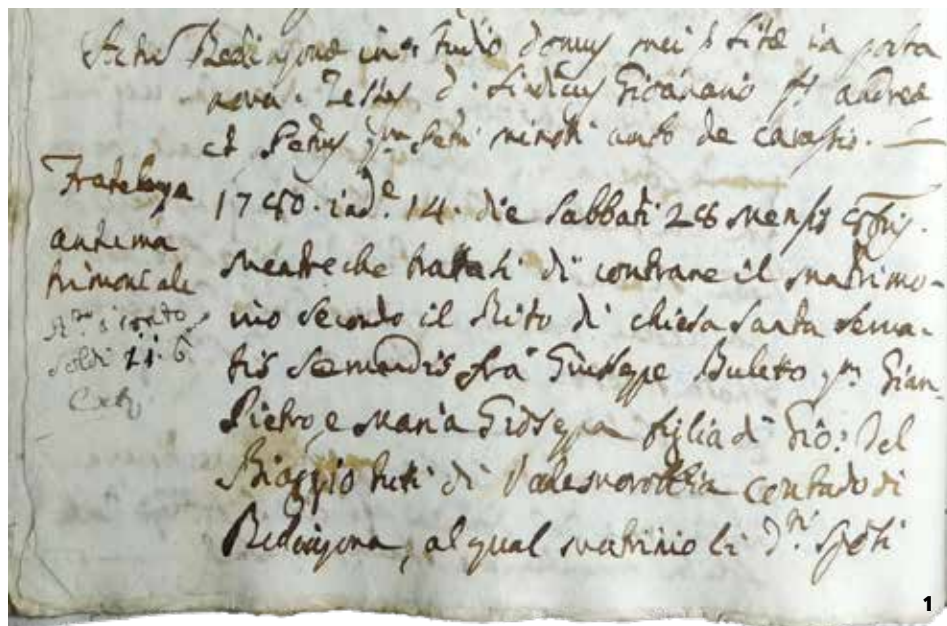 Actu Bedinzone in studio domus mei sitæ in porta
nova. Testes d. Sindicus Giovanano andrea
et Petrus qm Petri minoli de
Fratelanza
antima
trimoniale
soldi 21. 6
1780. ind.e 14. die Sabbati 28 mensis 8bris.
Mentre che trattasi di contrare il matrimo-
nio secondo il Rito di chiesa santa serva-
tis servandis frà Giuseppe Buleto qm Gian
Pietro, e Maria Gioseppa figlia di Gio: Del
Biaggio tuti di Valemorobbia contado di
Bedinzona, al qual matrinio li d.ti Sposi
1